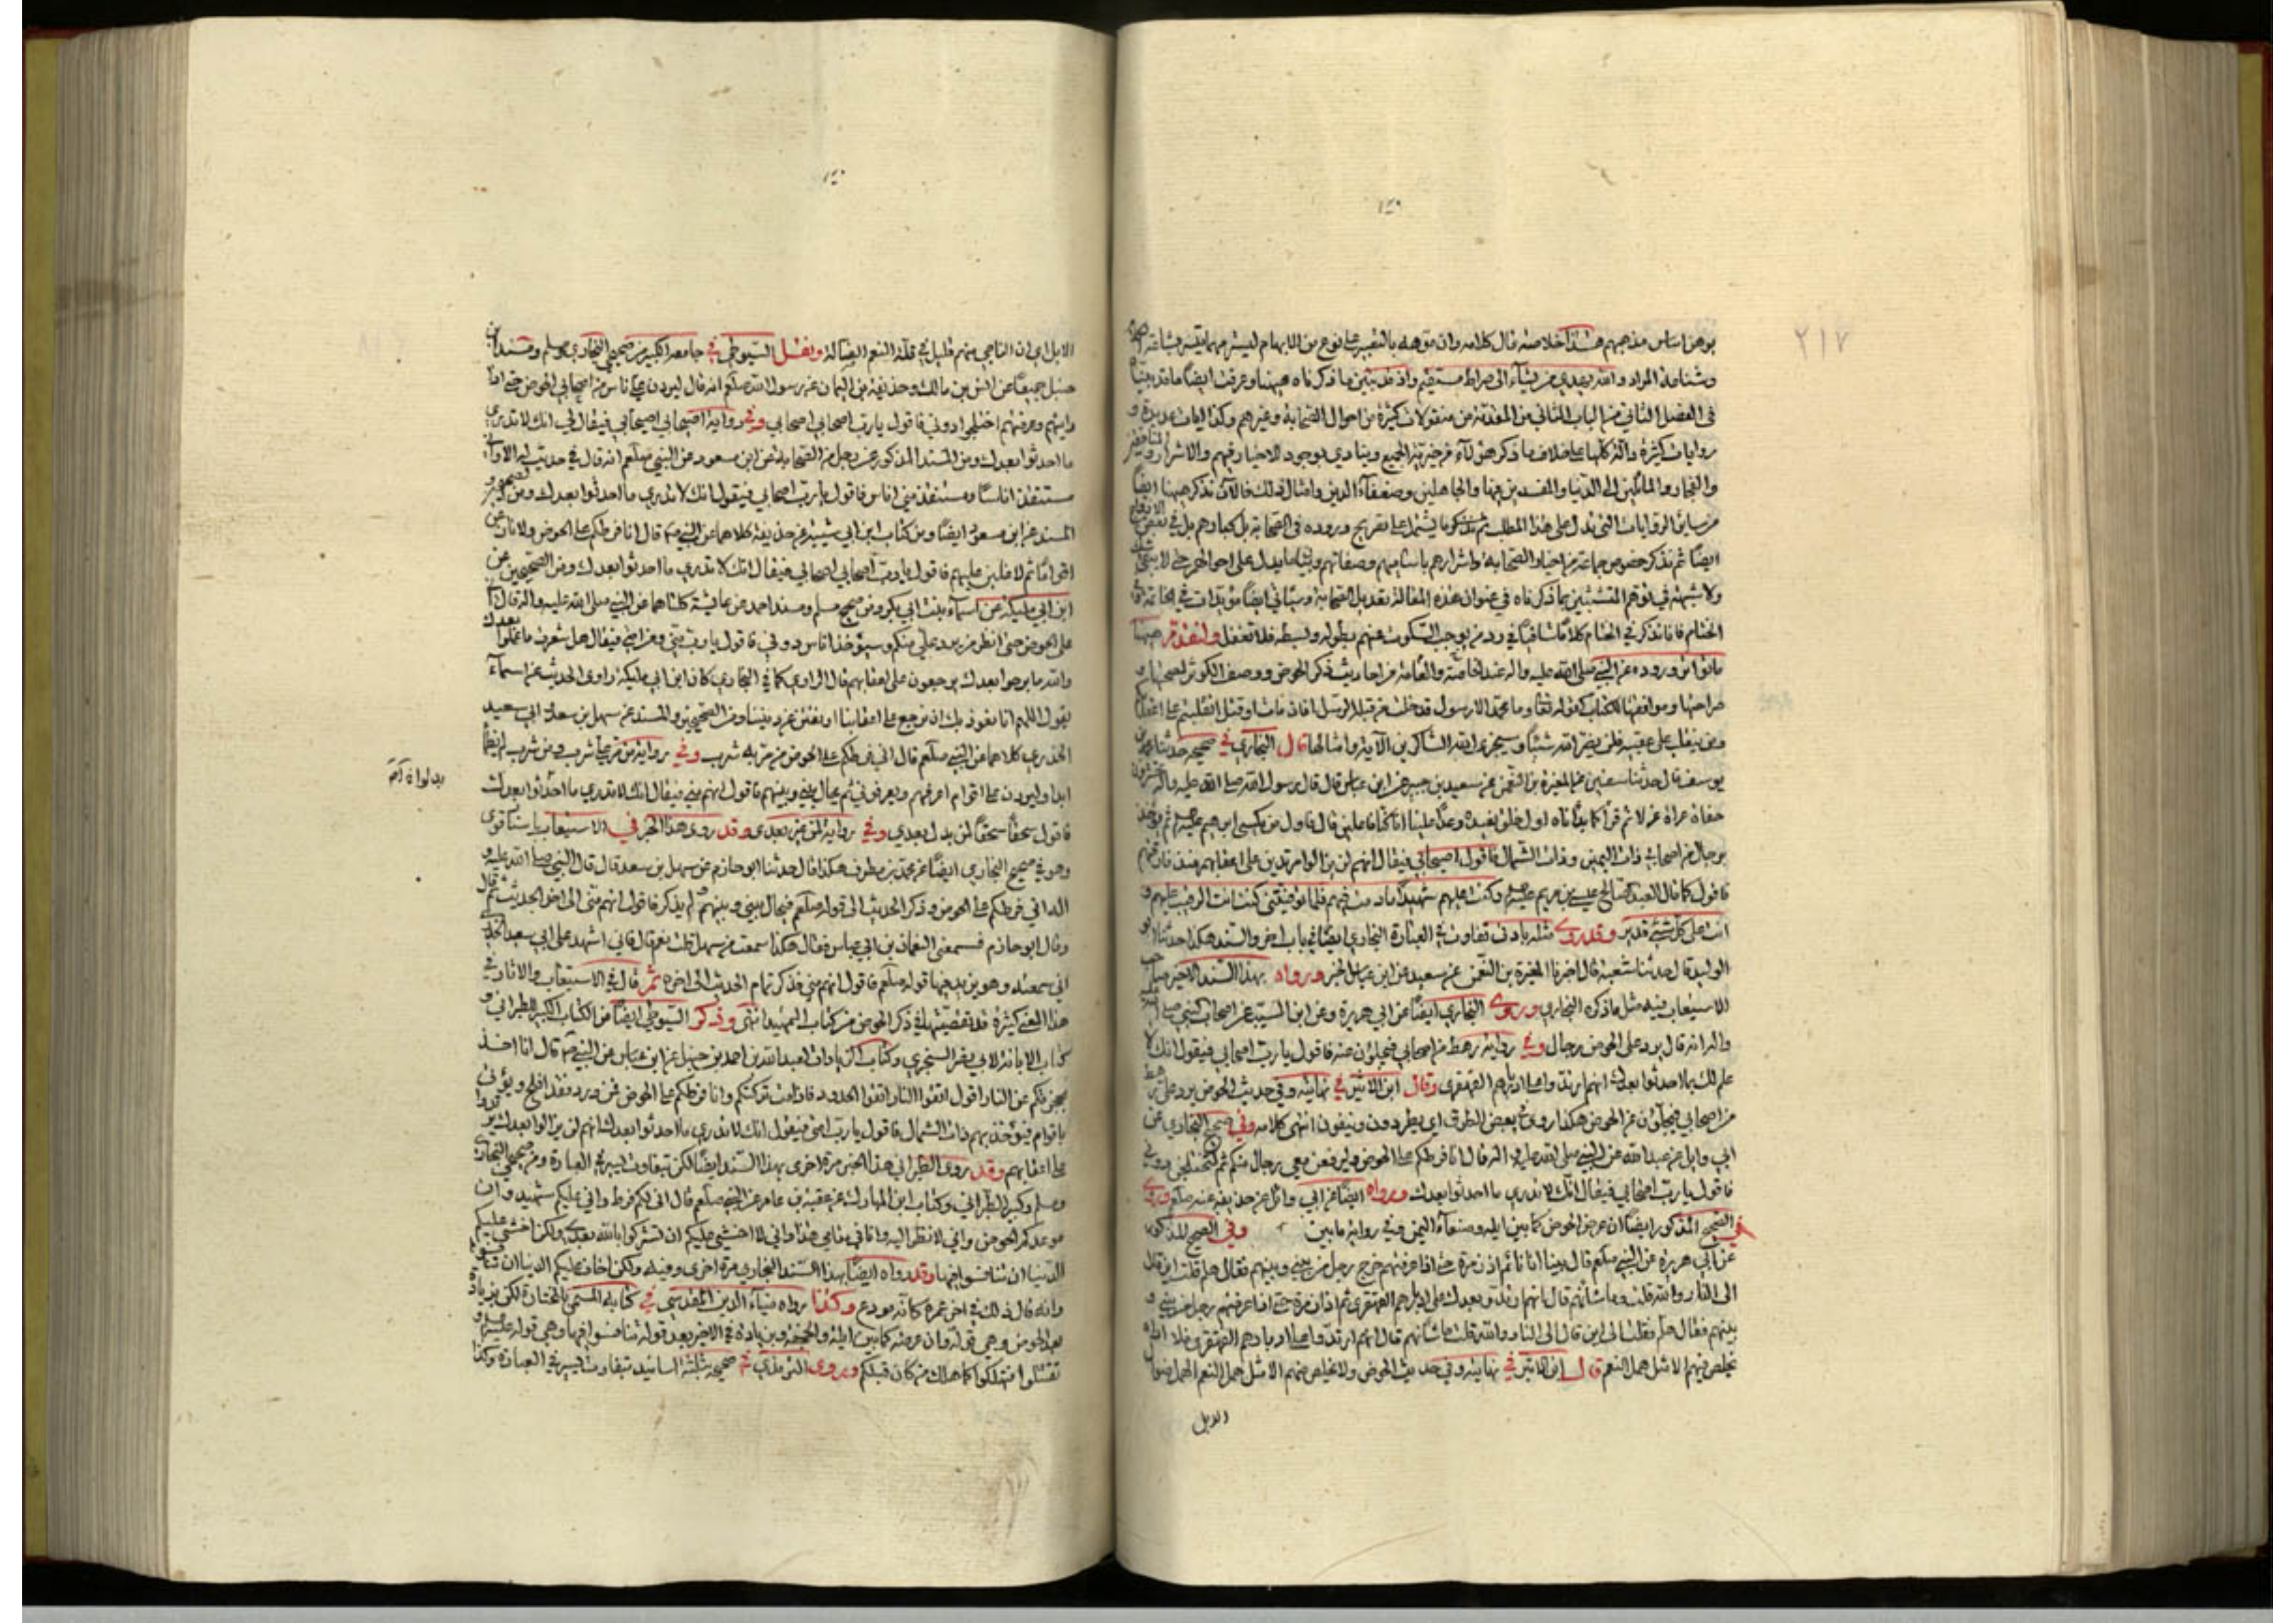 ٢١٧
بوهن اساس مذهبهم هذا خلاصة قال كلامه وان موهه بالتعبير على نوع من الابهام ليستر مهما تيسر بشاعة
وشناعة المراد والله يهدي من يشاء الى صراط مستقيم واذ قد تبين ما ذكرناه ههنا وعرفت ايضا ما قد بيناه
في الفصل الثاني من الباب الثاني من المقدمة من منقولات كثيرة من احوال الصحابة وغيرهم وكذا ايات عديدة و
روايات كثيرة دالة كلها على خلاف ما ذكر هؤلاء من خيرية الجميع وينادي بوجود الاخيار فيهم والاشرار و
والفجار والمائلين الى الدنيا والمفسدين فيها والجاهلين وضعفاء الدين وامثال ذلك فالآن نذكر ههنا ايضا
من سائر الروايات التي تدل على هذا المطلب ثم ما يشتمل على تصريح وروده في الصحابة بل كبارهم بل في بعض
ايضا ثم نذكر خصوص جماعة من اخيار الصحابة واشرارهم باساميهم وصفاتهم وبيان ما يدل على احوالهم حتى لا يبقى
ولا شبهة في توهم المتشبثين بما ذكرناه في عنوان هذه المقالة بتعديل الصحابة وسيأتي ايضا مؤيدات في الخاتمة
الختام فانا نذكر في الختام كلاما شافيا في رد من يوجب السكوت عنهم بطوله وبسطه فلا تغفل ولنقدم ههنا
ما تواتر وروده عن النبي صلى الله عليه واله عند الخاصة والعامة من احاديث ذكر الحوض ووصف الكوثر لصحتها و
صراحتها وموافقتها للكتاب كقوله تعالى وما محمد الا رسول قد خلت من قبله الرسل افان مات او قتل انقلبتم على اعقابكم
ومن ينقلب على عقبيه فلن يضر الله شيئا وسيجزي الله الشاكرين الآية وامثالها قال البخاري في صحيحه حدثنا محمد بن
يوسف قال حدثنا سفين عن المغيرة بن النعمن عن سعيد بن جبير عن ابن عباس قال قال رسول الله صلى الله عليه واله تحشرون
حفاة عراة غرلا ثم قرأ كما بدأناه اول خلق نعيده وعدا علينا انا كنا فاعلين قال فاول من يكسى ابرهيم ثم يؤخذ
برجال من اصحابي ذات اليمين وذات الشمال فاقول اصيحابي فيقال انهم لن يزالوا مرتدين على اعقابهم منذ فارقتهم
فاقول كما قال العبد الصالح عيسى بن مريم وكنت عليهم شهيدا ما دمت فيهم فلما توفيتني كنت انت الرقيب عليهم و
انت على كل شيء قدير وقد روى مثله بادنى تفاوت في العبارة البخاري ايضا في باب اخر والسند هكذا حدثنا ابو
الوليد قال حدثنا شعبة قال اخبرنا المغيرة بن النعمن عن سعيد عن ابن عباس الخبر ورواه بهذا السند الاخير صاحب
الاستيعاب فيه مثل ما ذكره البخاري وروى البخاري ايضا عن ابي هريرة وعن ابن المسيب عن اصحاب النبي صلى الله
واله انه قال يرد على الحوض رجال وفي رواية رهط من اصحابي فيحلؤن عنه فاقول يا رب اصحابي فيقول انك لا
علم لك بما احدثوا بعدك انهم ارتدوا على ادبارهم القهقرى وقال ابن الاثير في نهايته وفي حديث الحوض يرد علي رهط
من اصحابي فيحلؤن عن الحوض هكذا روي في بعض الطرق اي يطردون وينفون انتهى كلامه وفي صحيح البخاري عن
ابي وايل عن عبدالله عن النبي صلى الله عليه واله قال انا فرطكم على الحوض وليرفعن معي رجال منكم ثم ليختلجن دوني
فاقول يا رب اصحابي فيقال انك لا تدري ما احدثوا بعدك ورواه ايضا عن ابي وائل عن حذيفة عنه صلعم وروى
في الصحيح المذكور ايضا ان عرض الحوض كما بين ايله وصنعاء اليمن وفي رواية ما بين وفي الصحيح المذكور
عن ابي هريرة عن النبي صلعم قال بينا انا نائم اذن زمرة حتى اذا عرفتهم خرج رجل من بيني وبينهم فقال هلم قلت اين قال
الى النار والله قلت وما شأنهم قال انهم ارتدوا بعدك على ادبارهم القهقرى ثم اذا زمرة حتى اذا عرفتهم خرج رجل من بيني و
بينهم فقال هلم فقلت الى اين قال الى النار والله قلت ما شأنهم قال انهم ارتدوا على ادبارهم القهقرى فلا اراه
يخلص منهم الا مثل همل النعم قال ابن الاثير في نهايته وفي حديث الحوض ولا يخلص منهم الا مثل همل النعم الهمل ضوال
الابل
الابل اي ان الناجي منهم قليل في قلة النعم الضالة ونقل السيوطي في جامعه الكبير من صحيحي البخاري ومسلم ومسند ابن
حنبل جميعا عن انس بن مالك وحذيفة بن اليمان عن رسول الله صلعم انه قال ليردن علي ناس من اصحابي الحوض حتى اذا
رايتهم وعرفتهم اختلجوا دوني فاقول يا رب اصحابي اصحابي وفي رواية اصيحابي اصيحابي فيقال لي انك لا تدري
ما احدثوا بعدك ومن المسند المذكور عن رجل من الصحابة عن ابن مسعود عن النبي صلعم انه قال في حديث له الا وان
مستنقذ اناسا ومستنقذ مني اناس فاقول يا رب اصحابي فيقول انك لا تدري ما احدثوا بعدك ومن
المسند عن ابن مسعود ايضا ومن كتاب ابن ابي شيبة عن حذيفة كلاهما عن النبي ص قال انا فرطكم على الحوض ولانازعن
اقواما ثم لاغلبن عليهم فاقول يا رب اصحابي اصحابي فيقال انك لا تدري ما احدثوا بعدك ومن الصحيحين عن
ابن ابي مليكة عن اسماء بنت ابي بكر ومن صحيح مسلم ومسند احمد عن عايشة كلتاهما عن النبي صلى الله عليه واله قال انا
على الحوض حتى انظر من يرد علي منكم وسيؤخذ اناس دوني فاقول يا رب مني ومن امتي فيقال هل شعرت ما عملوا بعدك
والله ما برحوا بعدك يرجعون على اعقابهم قال الراوي كما في البخاري كان ابن ابي مليكة راوي الحديث عن اسماء
يقول اللهم انا نعوذ بك ان نرجع على اعقابنا او نفتن عن ديننا ومن الصحيحين والمسند عن سهل بن سعد وابي سعيد
الخدري كلاهما عن النبي صلعم قال اني فرطكم على الحوض من مر به شرب وفي رواية من مر علي شرب ومن شرب لم يظمأ
ابدا وليردن علي اقوام اعرفهم ويعرفوني ثم يحال بيني وبينهم فاقول انهم مني فيقال انك لا تدري ما احدثوا بعدك
فاقول سحقا سحقا لمن بدل بعدي وفي رواية لمن غير بعدي وقد روى هذا الخبر في الاستيعاب باسناد قوي
وهو في صحيح البخاري ايضا عن محمد بن مطرف هكذا قال حدثنا ابو حازم عن سهل بن سعد قال قال النبي صلى الله عليه و
اله اني فرطكم على الحوض وذكر الحديث الى قوله صلعم فيحال بيني وبينهم ولم يذكر فاقول انهم مني الى اخر الحديث ثم قال
وقال ابو حازم فسمعني النعمان بن ابي عياش فقال هكذا سمعت من سهل قلت نعم قال فاني اشهد على ابي سعيد الخدري
اني سمعته وهو يزيد فيها قوله صلعم فاقول انهم مني فذكر تمام الحديث الى اخره ثم قال في الاستيعاب والاثار في
هذا المعنى كثيرة قد تقصيتها في ذكر الحوض من كتاب التمهيد انتهى وذكر السيوطي ايضا من الكتاب الكبير للطبراني و
كتاب الابانة لابي نصر السنجري وكتاب الزيادات لعبد الله بن احمد بن حنبل عن ابن عباس عن النبي ص قال انا اخذ
بحجزكم عن النار اقول اتقوا النار اتقوا الحدود فاذا مت تركتكم وانا فرطكم على الحوض فمن ورد فقد افلح ويؤتى
باقوام فيؤخذ بهم ذات الشمال فاقول يا رب امتي فيقول انك لا تدري ما احدثوا بعدك انهم لن يزالوا بعدك يرتدون
على اعقابهم وقد روى الطبراني هذا الخبر مرة اخرى بهذا السند ايضا لكن بتفاوت يسير في العبارة ومن صحيحي البخاري
ومسلم وكبير الطبراني وكتاب ابن المبارك عن عقبة بن عامر عن النبي صلعم قال اني لكم فرط واني عليكم شهيد وان
موعدكم الحوض واني لانظر اليه وانا في مقامي هذا واني لا اخشى عليكم ان تشركوا بالله بعدي ولكن اخشى عليكم
الدنيا ان تنافسوا فيها وقد رواه ايضا بهذا السند البخاري مرة اخرى وفيه ولكن اخاف عليكم الدنيا ان تنافسوا
وانه قال ذلك في اخر عمره كانه مودع وكذا رواه ضياء الدين المقدسي في كتابه المسمى بالمختارة لكن بزيادة
بعد الحوض وهي قوله وان عرضه كما بين ايلة والجحفة وبزيادة في الاخير بعد قوله تنافسوا فيها وهي قوله
تقتتلوا فتهلكوا كما هلك من كان قبلكم وروى الترمذي في صحيحه بثلثة اسانيد بتفاوت يسير في العبارة وكذا